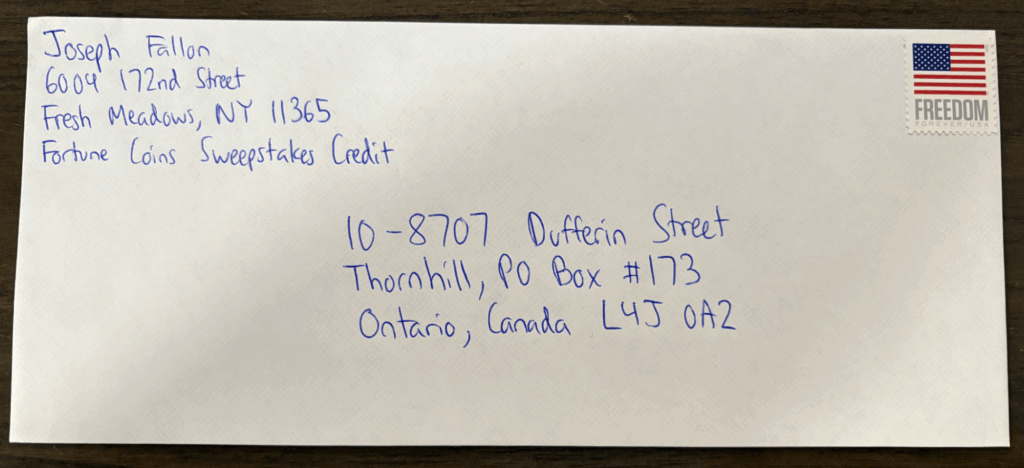 Joseph Fallon
6004 172nd Street
Fresh Meadows, NY 11365
Fortune Coins Sweepstakes Credit
FREEDOM
FOREVER/USA
10-8707 Dufferin Street
Thornhill, PO Box #173
Ontario, Canada L4J 0A2